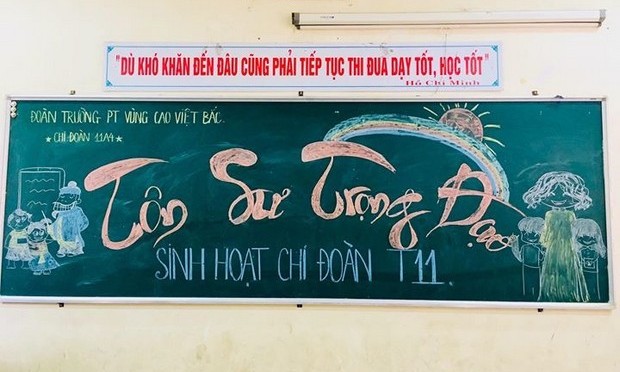 "DÙ KHÓ KHĂN ĐẾN ĐÂU CŨNG PHẢI TIẾP TỤC THI ĐUA DẠY TỐT, HỌC TỐT"
Hồ Chí Minh
ĐOÀN TRƯỜNG PT VÙNG CAO VIỆT BẮC.
★ CHI ĐOÀN 11A9 ★
Tôn Sư Trọng Đạo
SINH HOẠT CHI ĐOÀN T11.